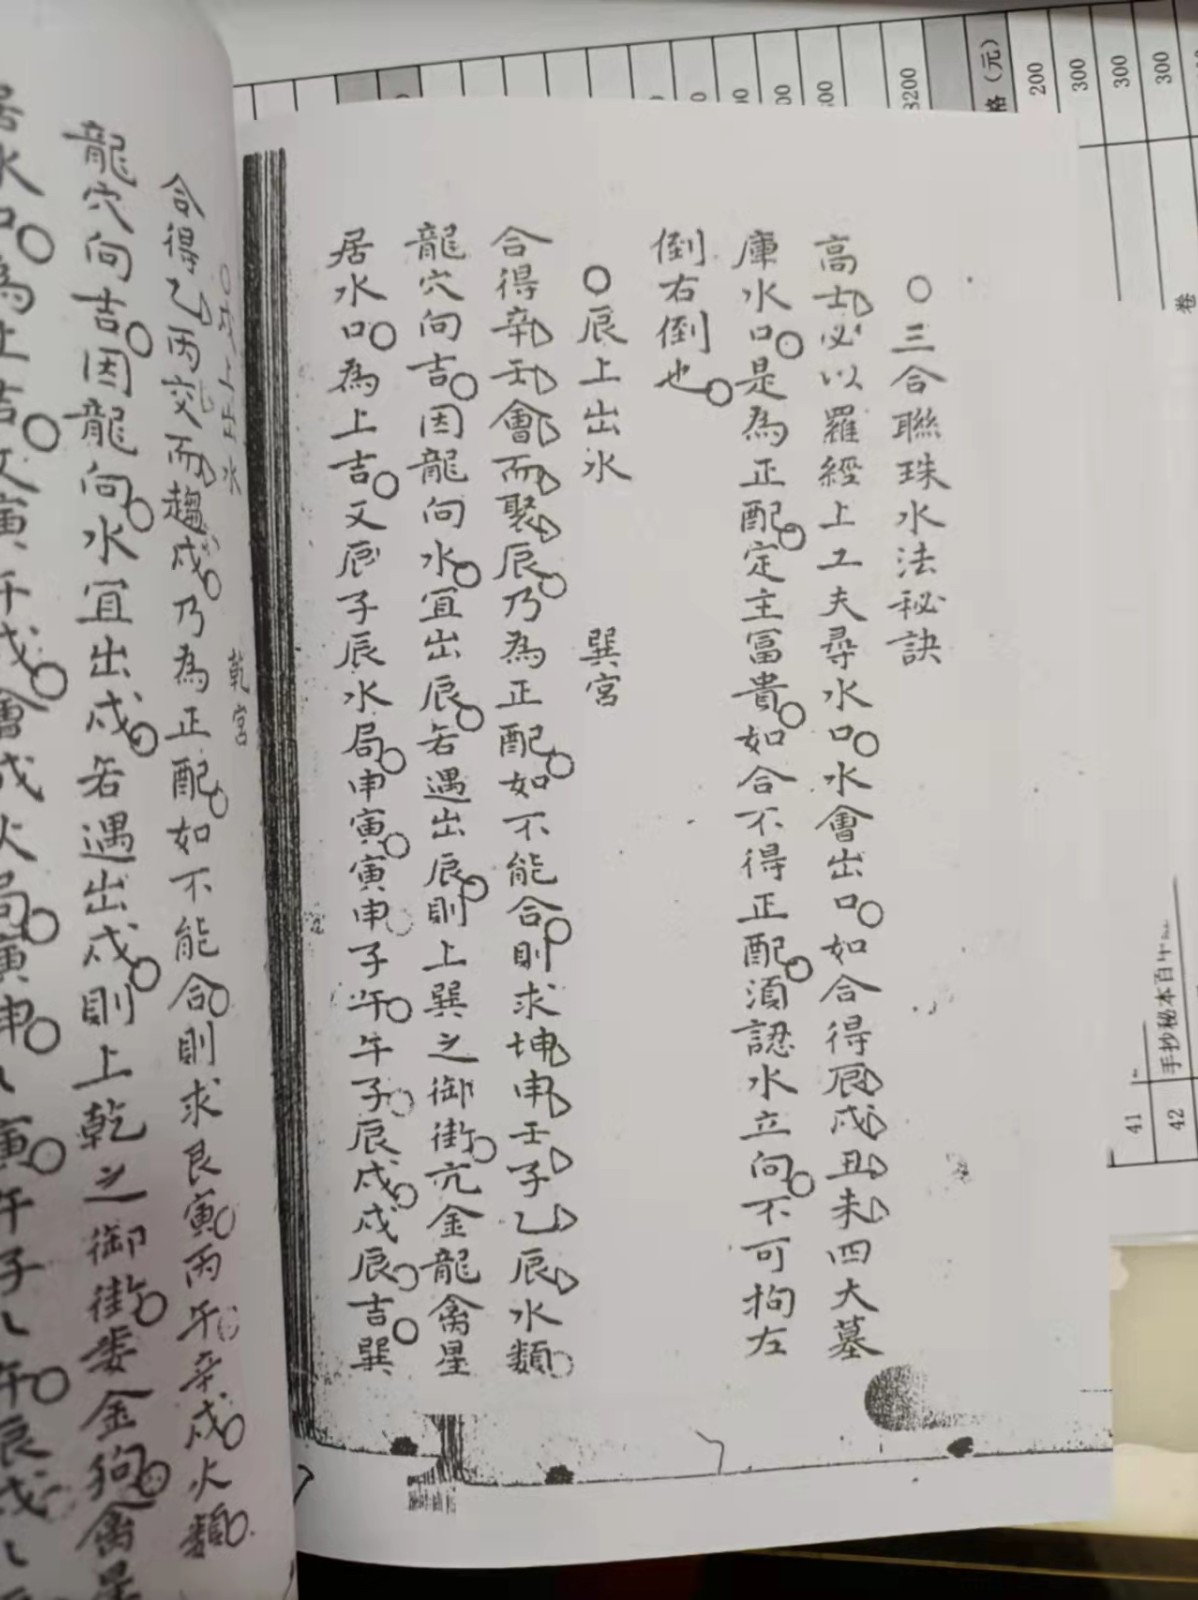 ○三合聯珠水法秘訣
高士必以羅經上工夫尋水口○水會出口○如合得辰戌丑未四大墓
庫水口○是為正配○定主富貴○如合不得正配○須認水立向○不可拘左
倒右倒也○
○辰上出水 巽宮
合得辛壬會而聚辰○乃為正配○如不能合○則求坤申壬子乙辰水類○
龍穴向吉○因龍向水○宜出辰○若遇出辰○則上巽之御街○亢金龍禽星
居水口○為上吉○又辰子辰水局○申寅○寅申○子午○午子○辰戌○戌辰○吉○巽
○戌上出水 乾宮
合得乙丙交而趨戌○乃為正配○如不能合○則求艮寅○丙午○辛戌○火類○
龍穴向吉○因龍向○水宜出戌○若遇出戌○則上乾之御街○婁金狗○禽星
居水口○為上吉○又寅午戌○會戌火局○寅申○
格（元）
200
300
300
300
3200
卷
41
42
手抄秘本百年